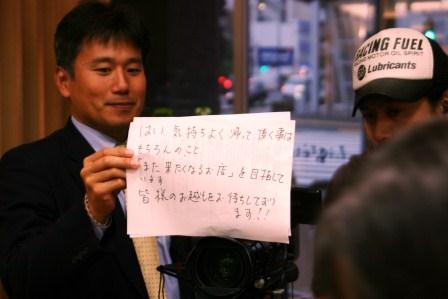 はい、気持ちよく帰って頂く事は
もちろんのこと
「また来たくなるお店」を目指して
います
皆様のお越しをお待ちしており
ます!!
RACING FUEL
MOTOR OIL SPIRIT
Lubricants